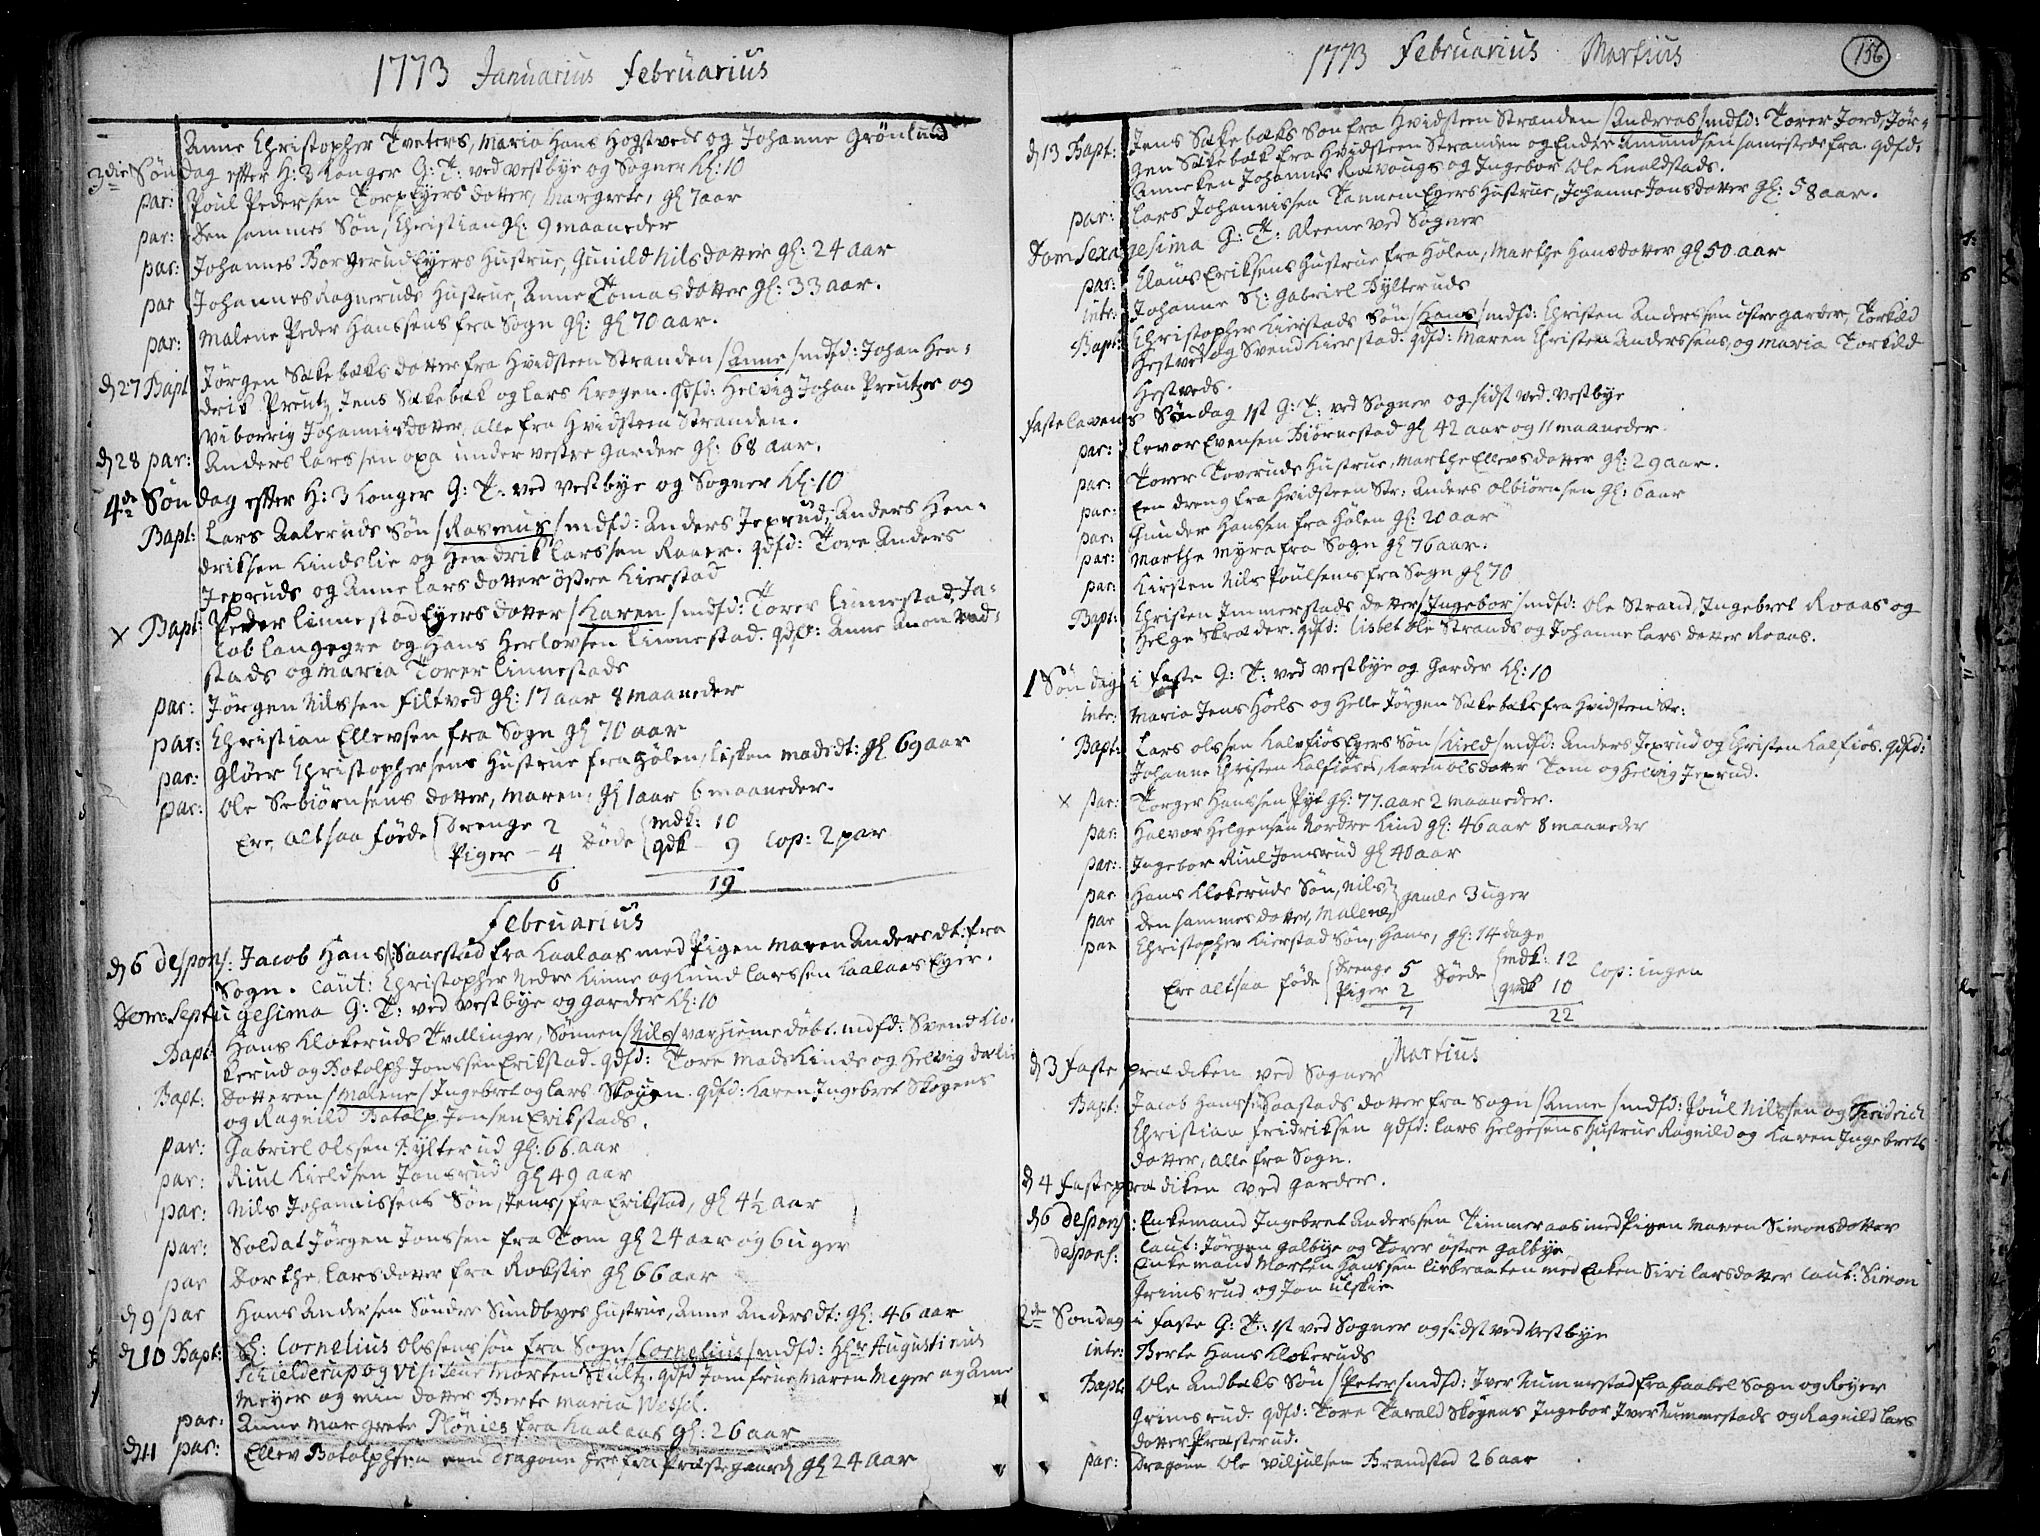 1773 Januarius Februarius
Anne Christopher Tveters, Maria Hans Hogstveds og Johanne Grönlund
3die Søndag efter H: 3 Konger G: T: ved Vestbye og Sogner Kl: 10
par: Poul Pedersen Torp Eyers dotter, Margrete, gl 7 aar
par: den sammes Søn, Christian gl: 9 maaneder
par: Johannes Borgerud Eyers Hustrue, Gunild Nilsdotter gl: 24 aar
par Johannes Ragneruds Hustrue, Anne Tomasdotter gl: 33 aar.
par: Malene Peder Hanssens fra Sogn gl: gl 70 aar.
d 27 Bapt Jørgen Sækebæks dotter fra Hvidsteen Stranden /Anne/ mdfd: Johan Hen-
drik Preutz Jens Sækebæk og Lars Krogen. qdfd: Helvig Johan Preutzes og
Viborrig Johannisdotter, alle fra Hvidsteen Stranden.
d 28 par: Anders Larssen oxa under vestre Garder gl: 68 aar.
4de Søndag efter H: 3 Konger G: T: ved Vestbye og Sogner Kl: 10
Bapt: Lars Aaleruds Søn /Rasmus/ mdfd: Anders Jeprud, Anders Hen-
driksen Kindslie og Hendrik Larssen Raaer. qdfd: Tore Anders
Jepruds og Anne Larsdotter östre Kierstad
x Bapt: Peder Linnestad Eyers dotter /Karen/ mdfd: Torer Linnestad, Ja-
cob Langegre og Hans Herlovsen Linnestad. qdfd: Anne
stads og Maria Torer Linnestads
par: Jørgen Nilssen Filtved gl: 17 aar 8 maaneder
par: Christian Ellevsen fra Sogn gl 70 aar
par: Glöer Christophersens Hustrue fra Hølen, Lisken Madsdt: gl 69 aar
par: Ole Sebiørnsens dotter, Maren, gl 1 aar 6 maaneder.
Ere altsaa föede Drenge 2 Döde mdk: 10
Piger - 4 qdk - 9 Cop: 2 par
6 19
Februarius
d 6 despons: Jacob Hans/:Saarstad fra Kaalaas med Pigen Maren Andersdt: fra
Sogn. Caut: Christopher Nedre Kinne og Knud Larssen Kaalaas Eger.
Dom: Septuagesima G: T: ved Vestbye og Garder Kl: 10
Bapt: Hans Klokeruds Tvillinger, Sönnen /Nils/ var hiemedöbt. mdfd: Svend Klo-
kerud og Botolph Jonssen Erikstad. qdfd: Tore Mads Kinds og Helvig Dælie
Bapt: Dotteren /Malene/ Ingebret og Lars Skoyen. qdfd: Karen Ingebret Skoyens
og Ragnild Botolp Jonsen Erikstads.
par: Gabriel Olssen Hylterud gl: 66 aar
par: Riul Kieldsen Jonsrud gl 49 aar
par: Nils Johannissens Søn, Jens, fra Erikstad, gl 4½ aar
par: Soldat Jørgen Jonssen fra Tom gl 24 aar og 6 uger
par Dorthe Larsdotter fra Rokstie gl 66 aar
d 9 par Hans Andersen Sønder Sundbyes Hustrue, Anne Andersdt: gl: 46 aar
d 10 Bapt: Sl: Cornelius Olssens søn fra Sogn /Cornelius/ mdfd: Hr Augustinus
Schielderup og Visiteur Morten Scultz. qdfd Jomfrue Maren Meyer og Anne
Meyer og min dotter Berte Maria Wessel.
par: Anne Margrete Plönies fra Kaalaas gl: 26 aar
d 11 par: Ellev Botolphsen een dragoun her fra Præstegaard gl 24 aar
1773 Februarius Martius
156
d 13 Bapt: Jens Sækebæks Søn fra Hvidsteen Stranden /Andreas/ mdfd: Torer Jord, Jør-
gen Sækebæk fra Hvidsteen Stranden og Ender Amundsen sammesteds fra. qdfd:
Anneken Johannes Ramvougs og Ingebor Ole Knaldstads.
par: Lars Johannissen Tannem Egers Hustrue, Johanne Jonsdotter gl: 58 aar.
Dom Sexagesima G: T: Aleene ved Sogner
par: Claus Eriksens Hustrue fra Hølen, Marthe Hansdotter gl 50 aar
intr: Johanne Sl: Gabriel Hylteruds
Bapt: Christopher Kierstads Søn /Hans/ mdfd: Christen Anderssen østre garder, Torkild
Hestved og Svend Kierstad: qdfd: Maren Christen Anderssens, og Maria Torkild
Hestveds.
Fastelavens Søndag 1st G: T: ved Sogner og sidst ved Vestbye
par: Levor Evensen Biørnestad gl 42 aar og 11 maaneder.
par: Torer Toveruds Hustrue, Marthe Ellevsdotter gl: 29 aar.
par: Een dreng fra Hvidsteen Str: Anders Olbiørnsen gl: 6 aar
par: Gunder Hanssen fra Hølen gl: 20 aar
par: Marthe Myra fra Sogn gl 76 aar.
par: Kirsten Nils Poulsens fra Sogn gl 70
Bapt: Christen Immerstads dotter /Ingebor/ mdfd: Ole Strand, Ingebret Roaas og
Helge Skræder. qdfd: Lisbet Ole Strands og Johanne Larsdotter Roaas.
1 Søndag i Faste G: T: ved Vestbye og Garder Kl: 10
intr: Maria Jens Hoels og Helle Jørgen Sækebæks fra Hvidsteen Str:
Bapt: Lars Olssen Kalvfiøs Egers Søn /Kield/ mdfd: Anders Jeprud og Christen Kalfiøs. qdfd:
Johanne Christen Kalfiøses, Karen Olsdotter Tom og Helvig Jeprud.
x par: Torger Hanssen Pyt gl: 77 aar 2 maaneder.
par: Halvor Helgensen Nordre Kind gl: 46 aar 8 maaneder
par: Ingebor Riul Jonsrud gl 40 aar
par Hans Klokeruds Søn, Nils
par den sammes dotter, Malene, gamle 3 uger
par Christopher Kierstad Søn, Hans, gl: 14 dage
Ere altsaa föde Drenge 5 Döede mdk: 12 Cop: ingen
Piger 2 qvdk 10
7 22
Martius
d 3 Fasteprædiken ved Sogner
Bapt: Jacob Hans/:Saastads dotter fra Sogn /Anne/ mdfd: Poul Nilssen og Fridrich
Christian Fridriksen qdfd: Lars Helgesens Hustrue Ragnild og Karen Ingebrets
dotter, alle fra Sogn.
d 4 Fasteprædiken ved Garder.
d 6 despons: Enkemand Ingebret Anderssen Timmeraas med Pigen Maren Simonsdotter
Caut: Jørgen Galbye og Torer östre Galbye
despons: Enkemand Morten Hanssen Liebraaten med Enken Siri Larsdotter Caut: Simon
Grimsrud og Jon Ulskie
2de Søndag i Faste G: T: 1st ved Sogner og sidst ved Vestbye
intr: Berte Hans Klokeruds
Bapt: Ole Andbæks Søn /Peter/ mdfd: Iver Nummestad fra Haabel Sogn og Reyer
Grimsrud. qdfd: Tore Tarald Skoyens Ingebor Iver Nummestads og Ragnild Lars
dotter Præsterud.
par: Dragoun Ole Viljulsen Brandstad 26 aar